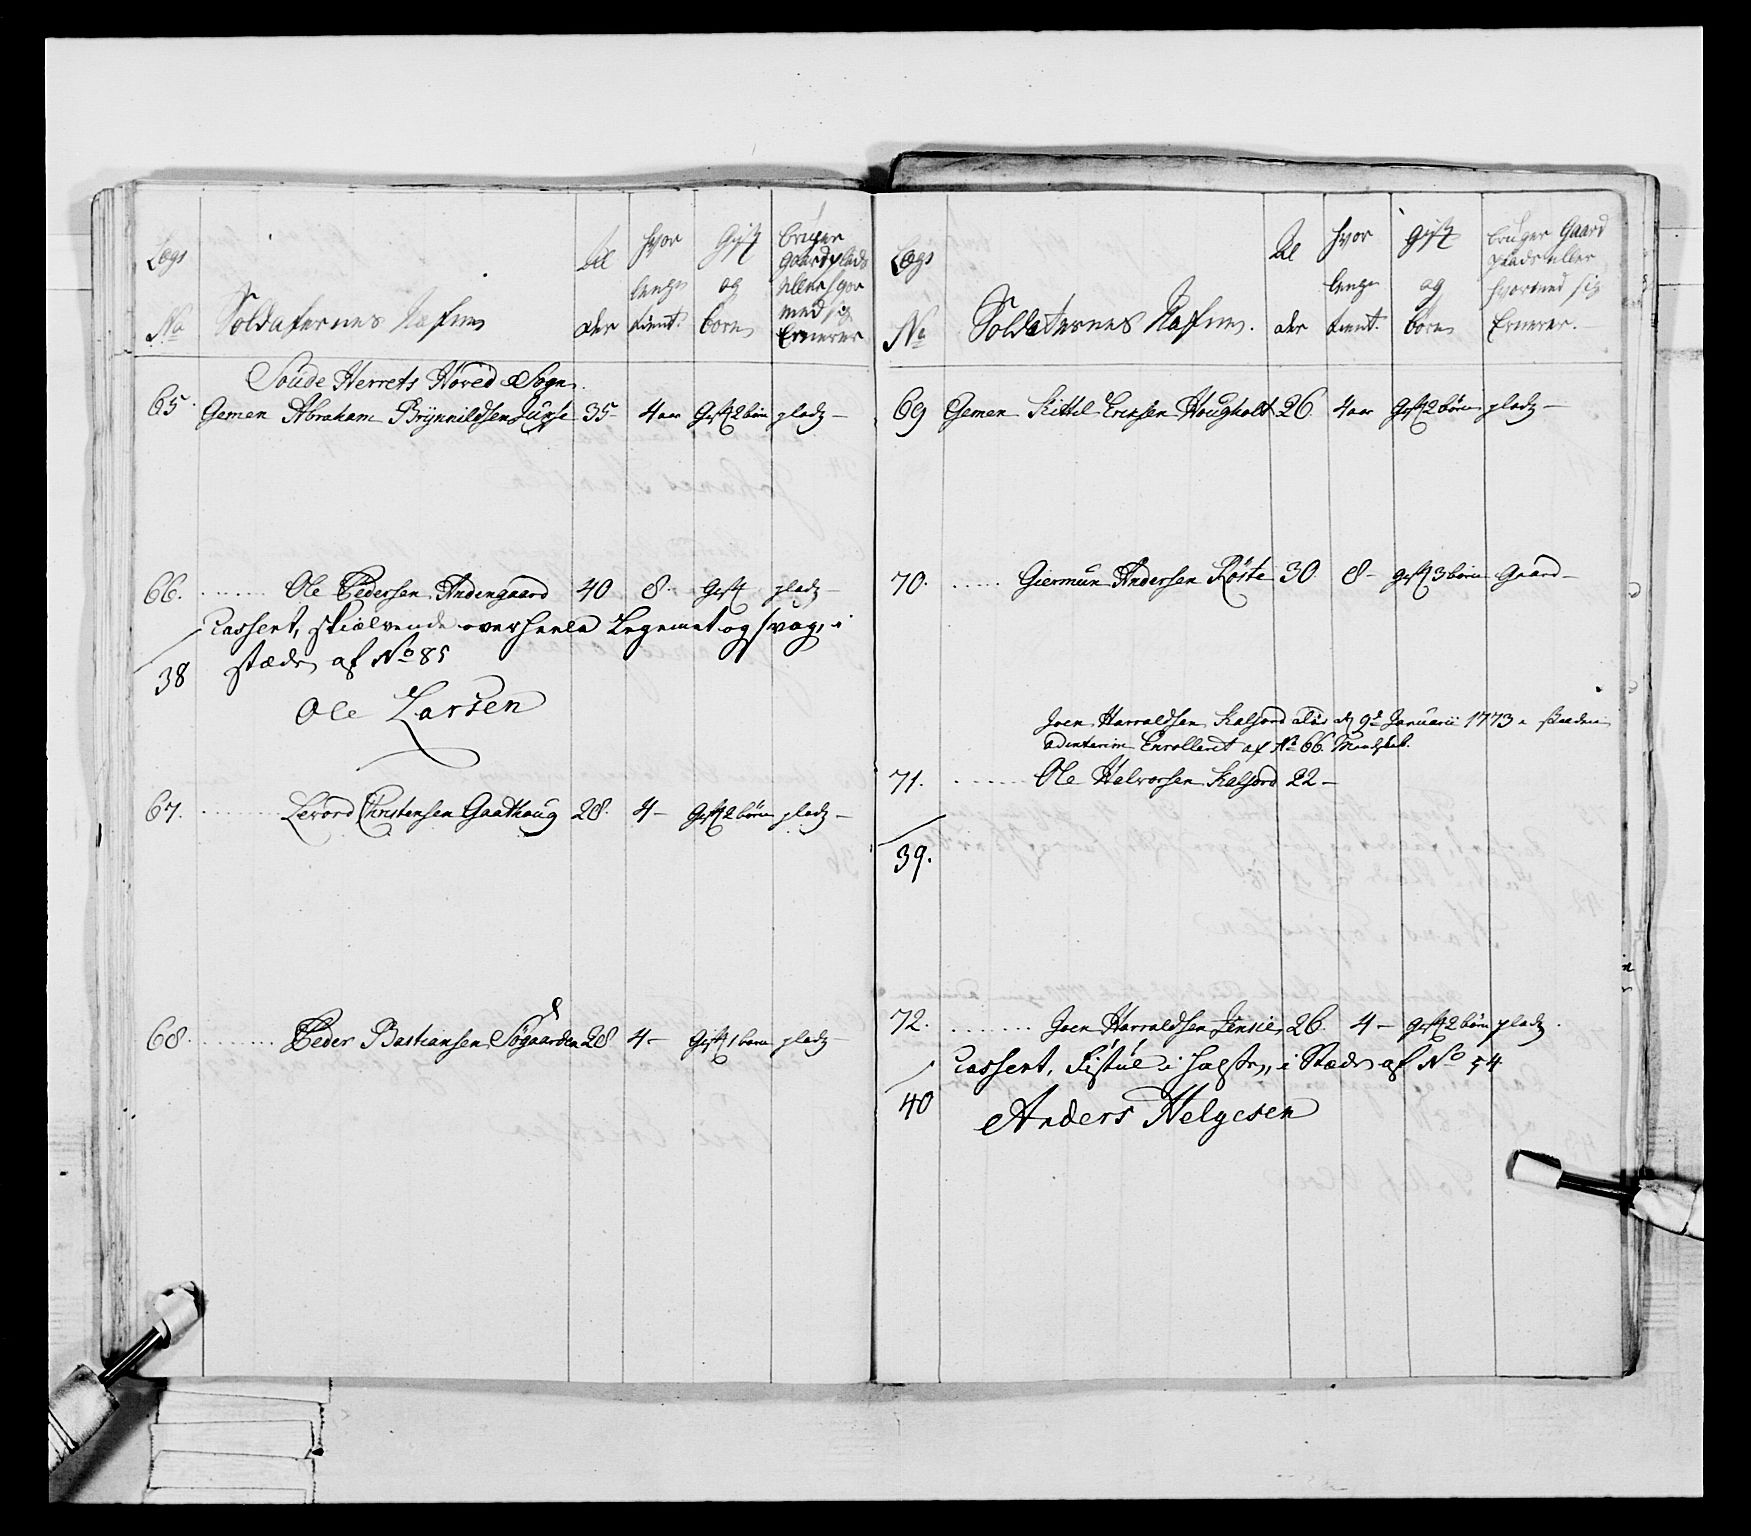 Lægs No
Soldaternes Nafne
Al der
hvor lenge tient.
Gift og børn
bruger Gaard plads eller hvor med sig Ernerer
Soude Herrets Hoved Sogn.
65. Gemen Abraham Brÿnnildsen 35 4 aar Gift 2 børn plads —
66. Ole Pedersen Andengaard 40 8. Gift plads —
Cassert, skiælvende over heele Legemet og svag, i
38 stæden af No 85
Ole Larsen
67. Levord Christensen Gaathoug 28. 4 — Gift 2 børn plads —
68. Peder Bastiansen Søgaarden 28 4 — Gift 1 barn plads —
Lægs No
Soldaternes Nafne.
Al der
hvor lenge tient.
gift og børn
bruger Gaard plads eller hvormed sig Ernerer.
69 Gemen Kittil Erichsen Hougholt 26 4 aar Gift 2 børn plads —
70. Giermun Andersen Røste 30 8 — gift 3 børn Gaard —
Joen Harraldsen Kalford Døde d 9d Januarii 1773 i stæden
adinterim Enrolleret af No 66
71. Ole Halvorsen Kalford 22 —
39.
72. Joen Harraldsen 26. 4 — gift 2 børn plads.
Cassert, Fistúl i halsen, i Stæden af No 54
40 Anders Helgesen